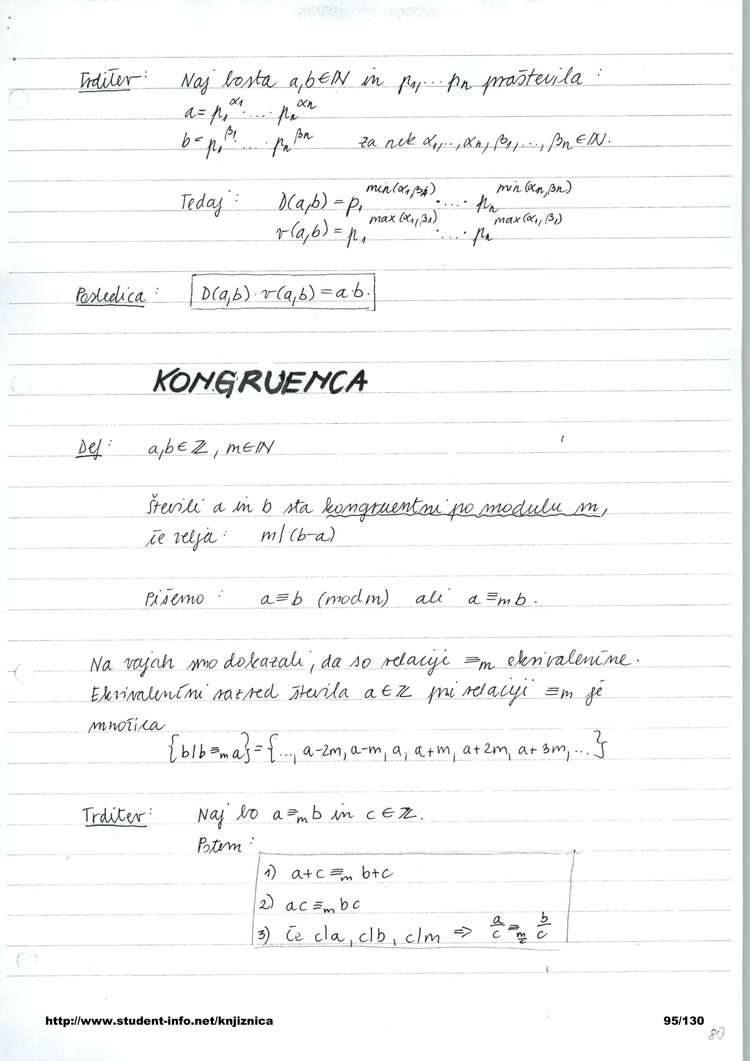 Trditev: Naj bosta a,b∈ℕ in p₁,... pₙ praštevila:
a = p₁^α₁ · .... · pₙ^αₙ
b = p₁^β₁ · .... · pₙ^βₙ za nek α₁,..,αₙ, β₁,..., βₙ ∈ ℕ.
Tedaj: D(a,b) = p₁^min(α₁,β₁) · .... · pₙ^min(αₙ,βₙ)
v(a,b) = p₁^max(α₁,β₁) · .... · pₙ^max(α₁,β₁)
Posledica: D(a,b) · v(a,b) = a·b.
KONGRUENCA
Def: a,b∈ℤ, m∈ℕ
Števili a in b sta kongruentni po modulu m,
če velja: m|(b-a)
Pišemo: a≡b (mod m) ali a ≡ₘ b.
Na vajah smo dokazali, da so relacije ≡ₘ ekvivalenčne.
Ekvivalenčni razred števila a∈ℤ pri relaciji ≡ₘ je
množica
{b|b ≡ₘ a} = {..., a-2m, a-m, a, a+m, a+2m, a+3m, ...}
Trditev: Naj bo a ≡ₘ b in c∈ℤ.
Potem:
1) a+c ≡ₘ b+c
2) ac ≡ₘ bc
3) Če c|a, c|b, c|m ⇒ a/c ≡_(m/c) b/c
http://www.student-info.net/knjiznica 95/130
80